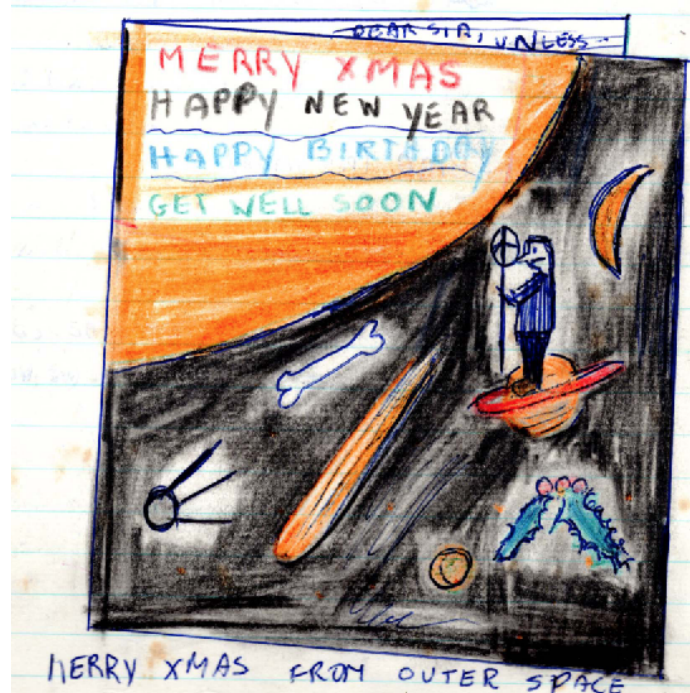 DEAR SIR, UNLESS..
MERRY XMAS
HAPPY NEW YEAR
HAPPY BIRTHDAY
GET WELL SOON
MERRY XMAS FROM OUTER SPACE